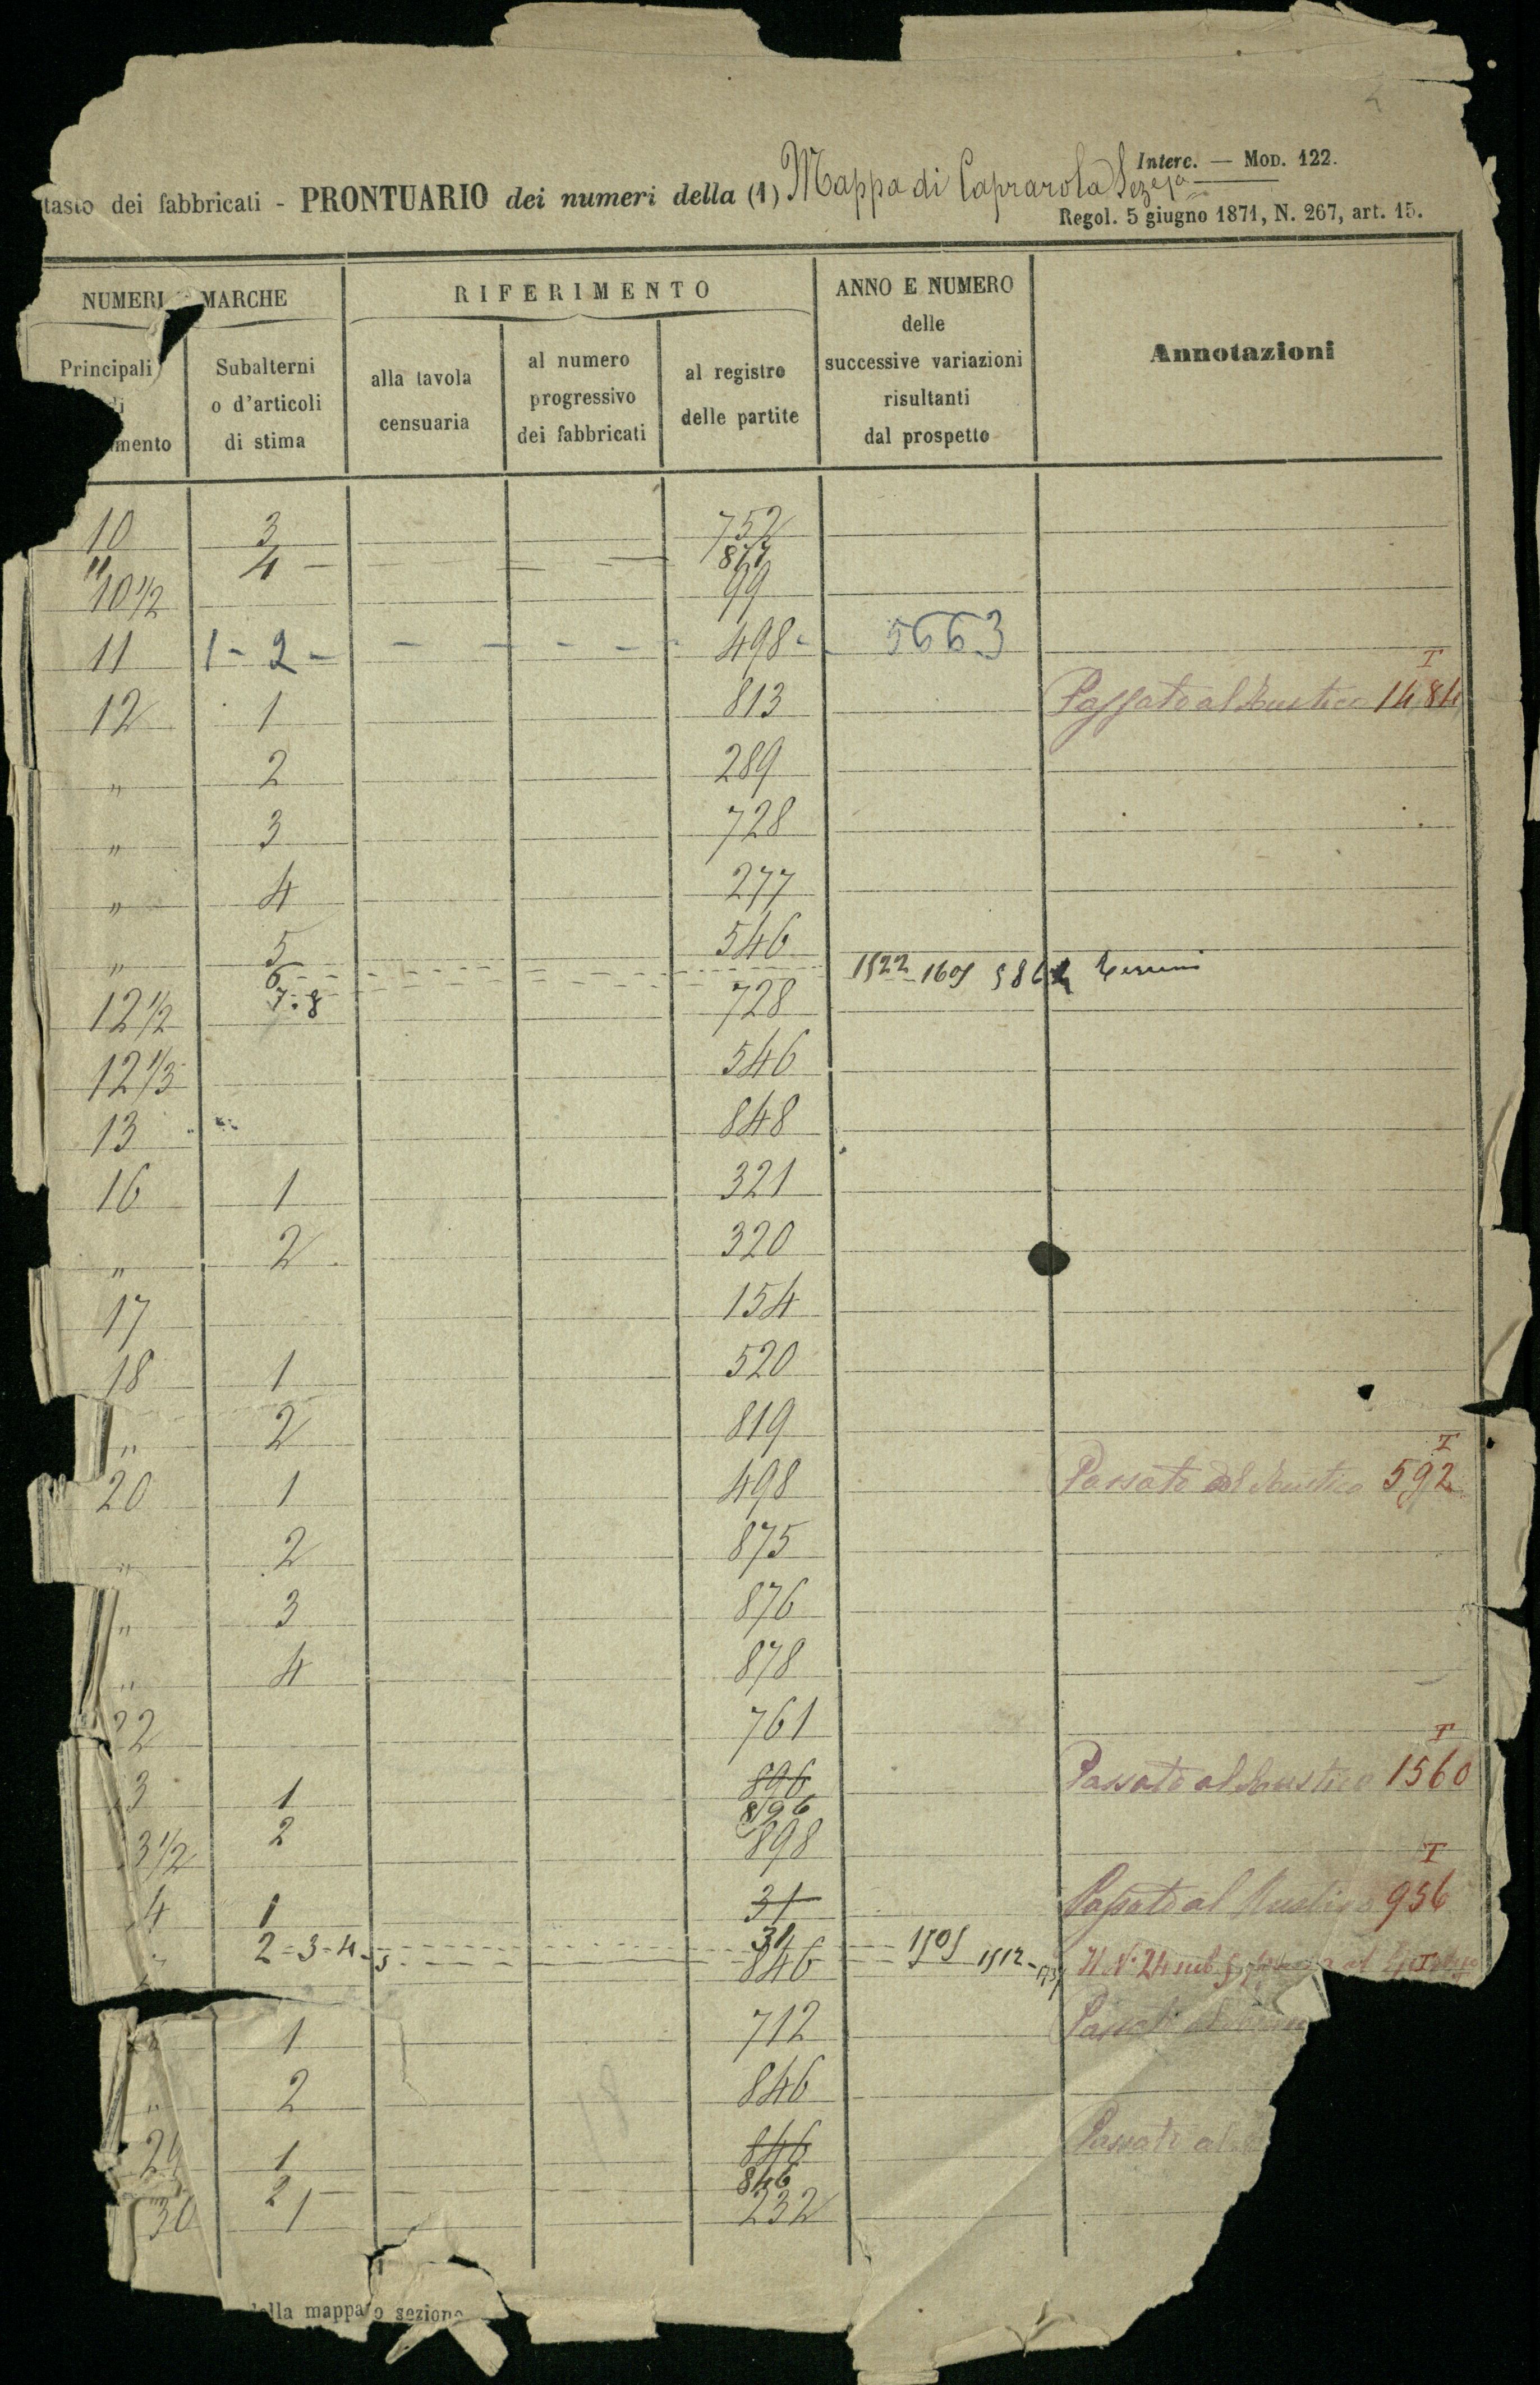 Interc. — Mod. 122.
tasto dei fabbricati - PRONTUARIO dei numeri della (1) Mappa di Caprarola
Regol. 5 giugno 1871, N. 267, art. 15.
NUMERI MARCHE
RIFERIMENTO
ANNO E NUMERO
delle
successive variazioni
risultanti
dal prospetto
Annotazioni
Principali
di
mento
Subalterni
o d'articoli
di stima
alla tavola
censuaria
al numero
progressivo
dei fabbricati
al registro
delle partite
10 3 752
" 4 877
10 1/2 99
11 1 - 2 - 498 5663
12 1 813 Passato al Rustico T 1484
" 2 289
" 3 728
" 4 277
" 5 546
6 1522 1605
7 : 8
12 1/2 728
12 1/3 546
13 848
16 1 321
" 2 320
17 154
18 1 520
" 2 819
20 1 498 Passato al Rustico T 592
" 2 875
" 3 876
" 4 878
22 761
3 1 896 Passato al Rustico T 1560
2 896
3 1/2 898
4 1 31 Passato al Rustico T 956
2 = 3 - 4 - 5 31 1505 1512 Il N. 24 sub
" 846
1 712
" 2 846
29 1 846 Passato al
2 846
30 1 232
della mappa o sezione